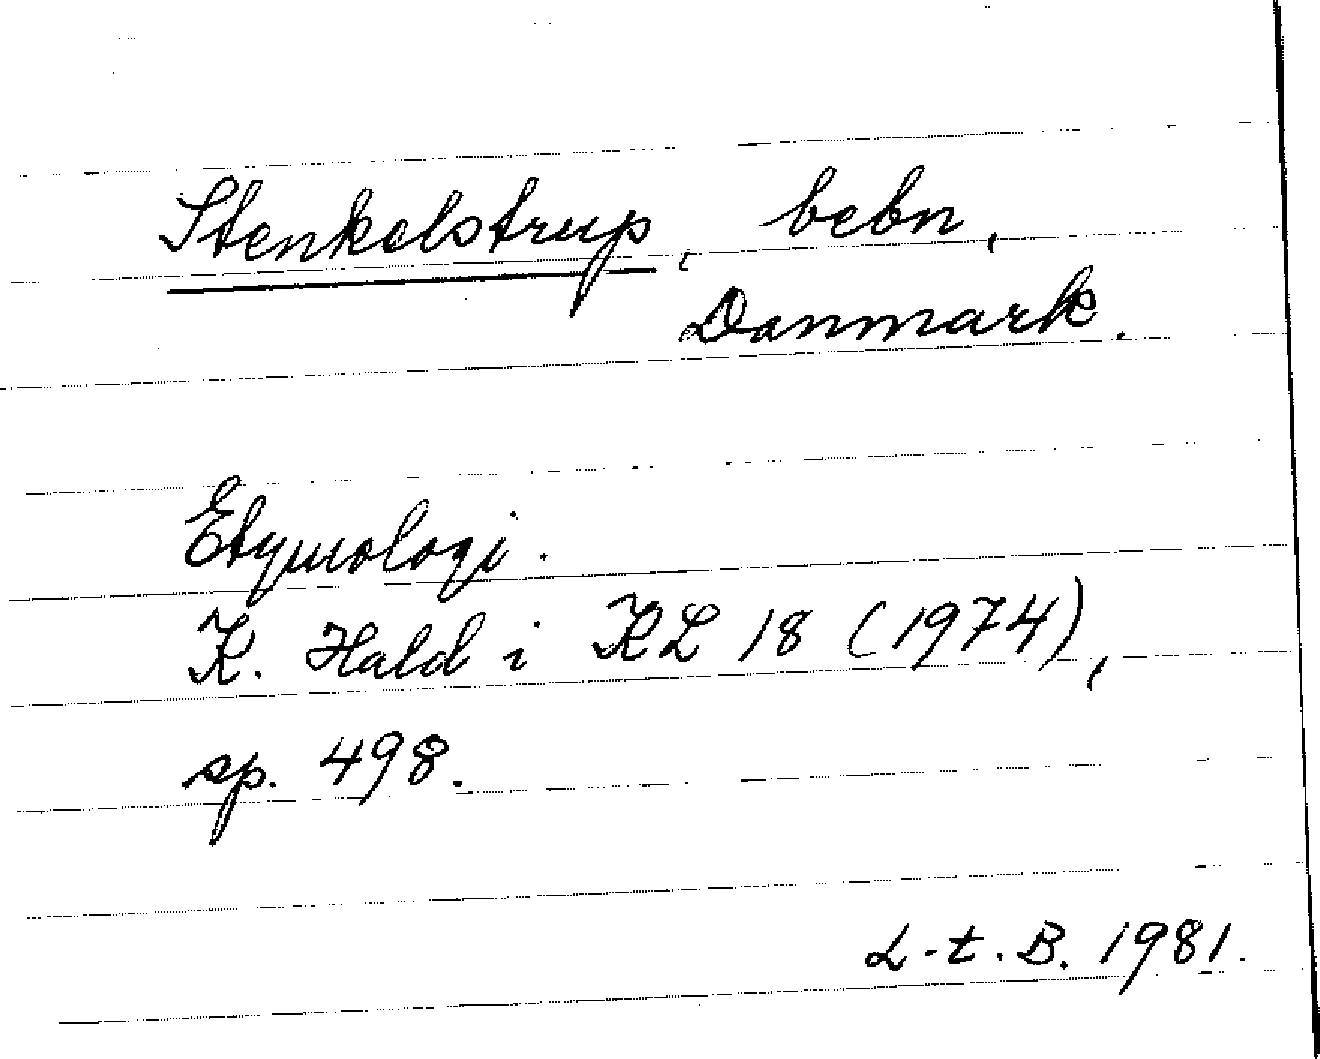 Stenkelstrup, bebn,
Danmark.
Etymologi.
K. Hald i KL 18 (1974),
sp. 498.
L-t. B. 1981.